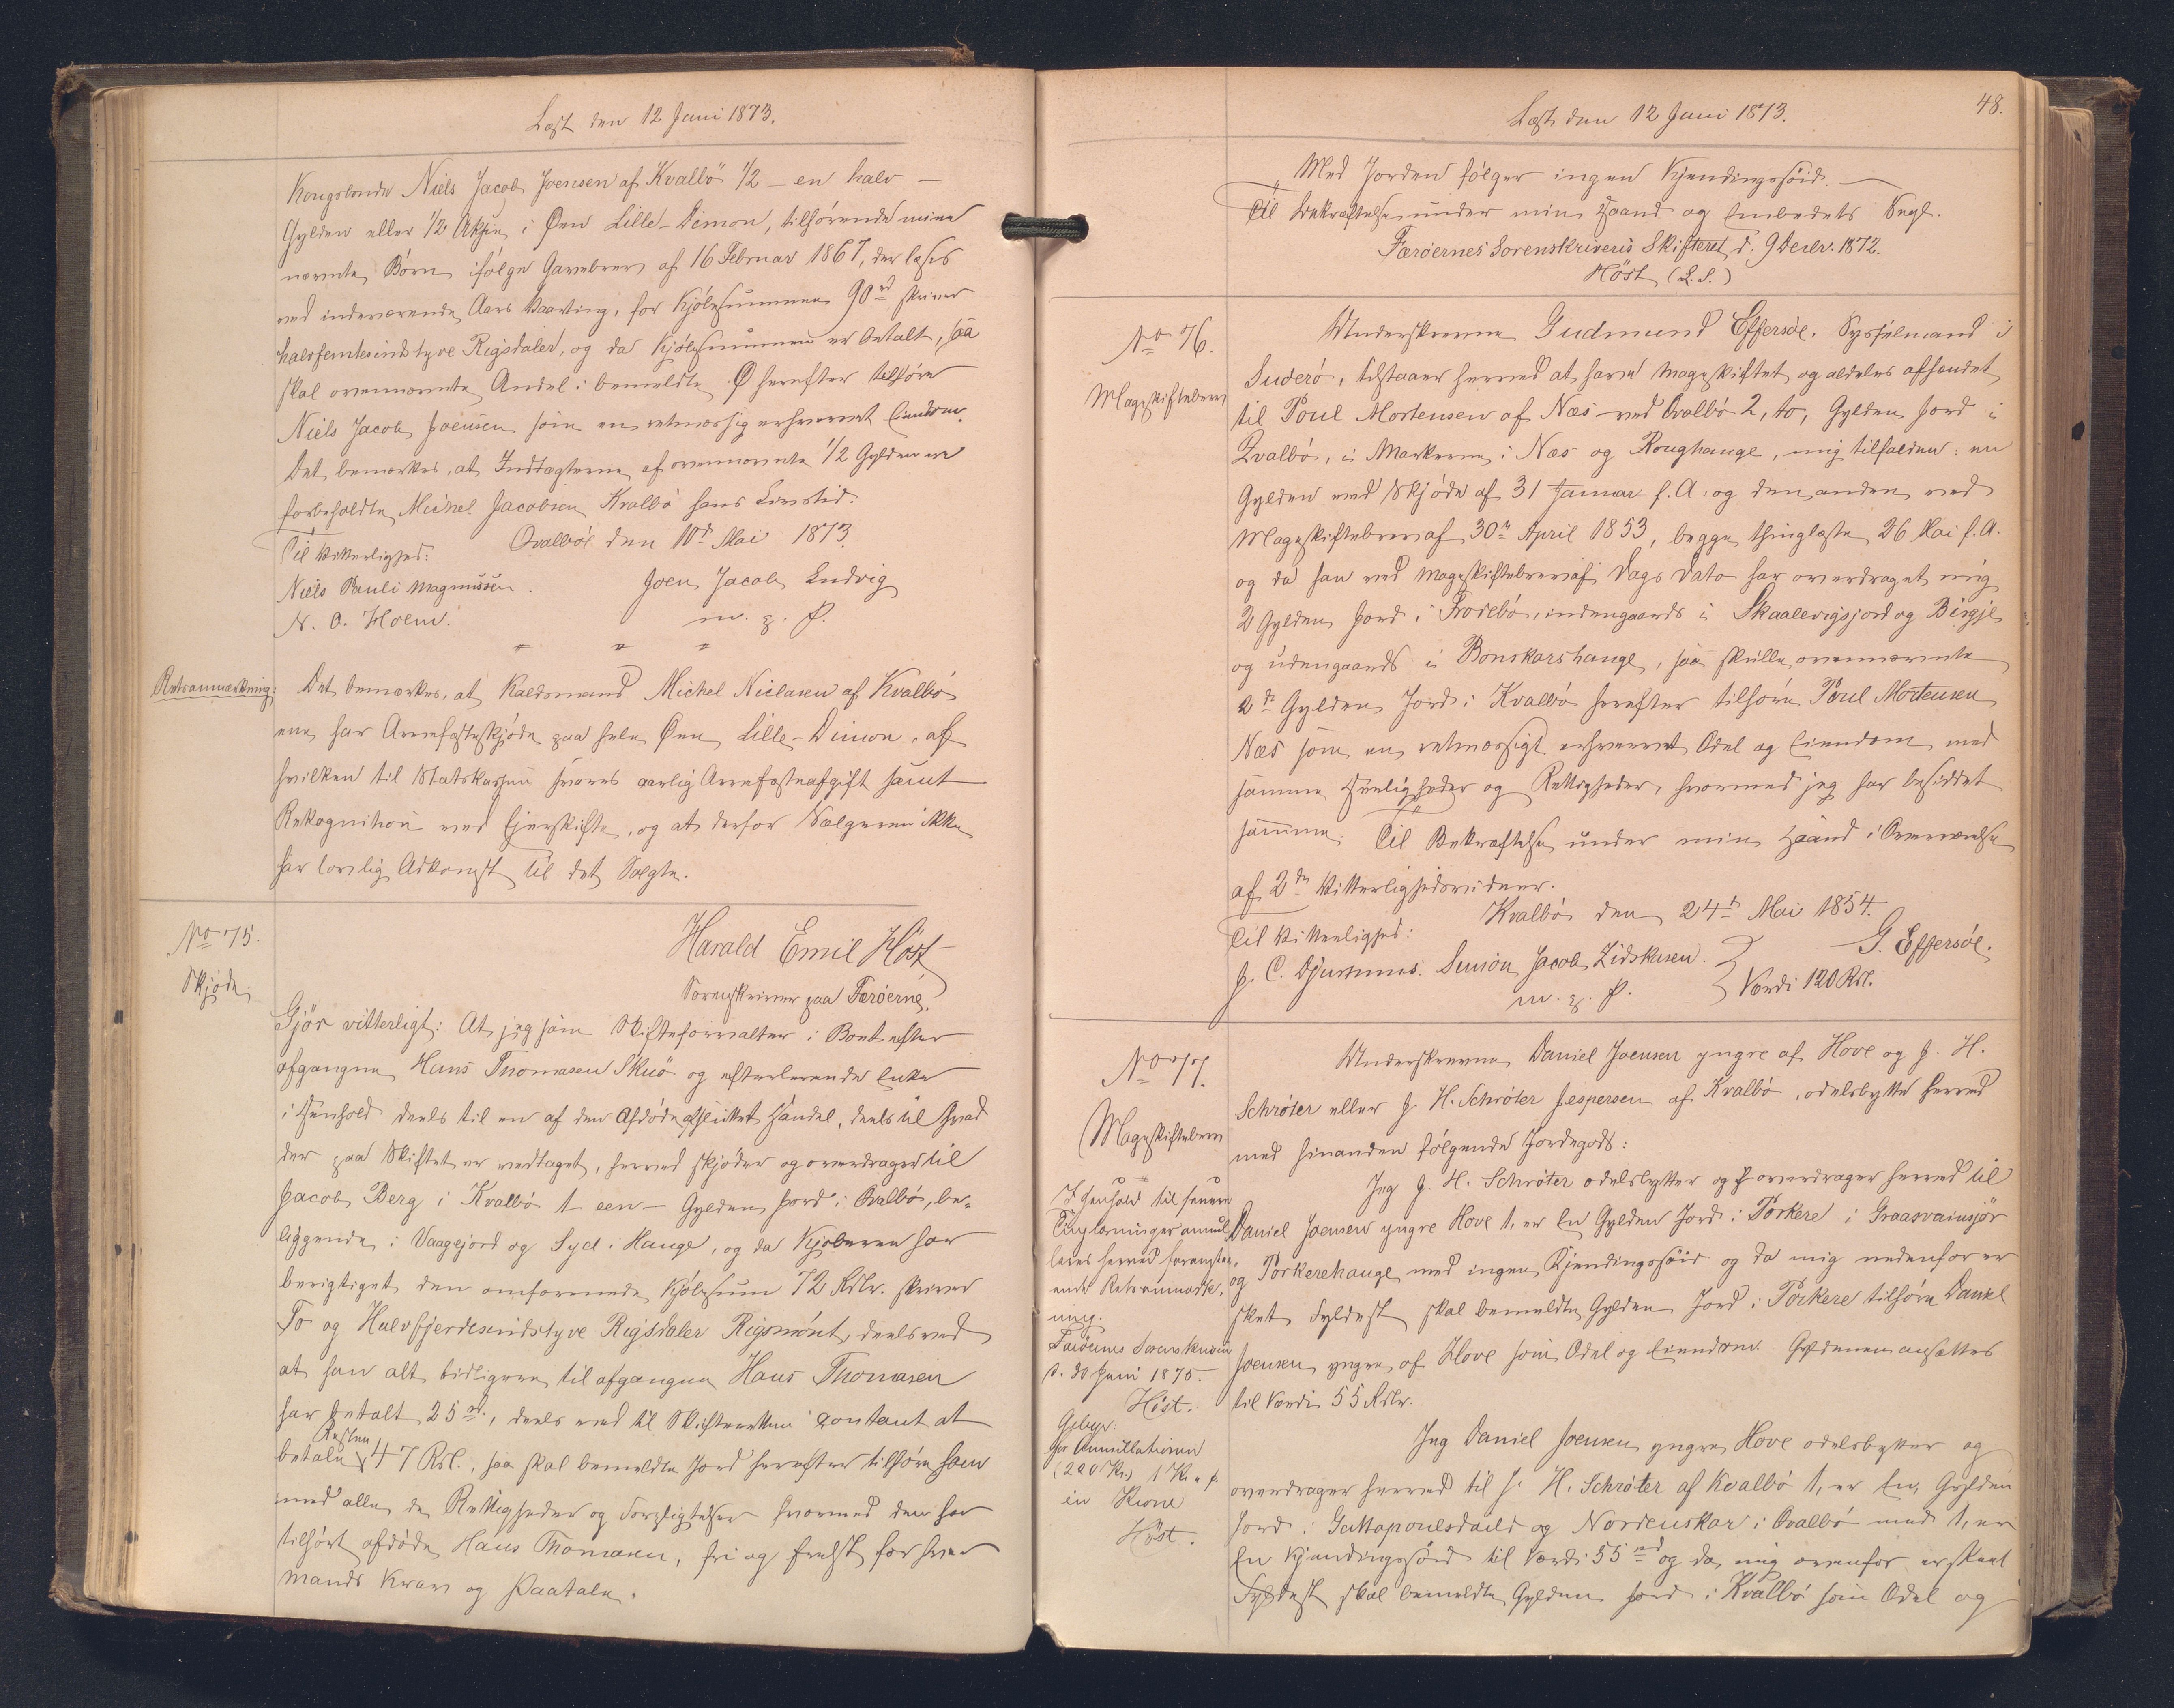 Læst den 12 Juni 1873.
Kongsbonde Niels Jacob Joensen af Kvalbö 1/2 - en halv -
Gylden eller 1/2 i Øen Lille-Dimon, tilhørende mine
nævnte Børn ifølge Gavebrev af 16 Februar 1867, der læses
ved indeværende Aars Vaarting, for Kjøbesummen 90 rd skriver
halvfemtesindstyve Rigsdaler, og da Kjøbesummen er betalt, saa
skal ovennævnte Andel i bemeldte Ø herefter tilhøre
Niels Jacob Joensen som en retmæssig erhvervet Eiendom.
Det bemærkes, at Indtægterne af ovennævnte 1/2 Gylden er
forbeholdte Michel Jacobsen Kvalbö hans Livstid.
Qvalböe den 10d Mai 1873.
Til Vitterlighed:
Niels Pauli Magnussen. Joen Jacob Ludvig
N. O. Holm. m. p. P.
" " "
Retsanmærkning: Det bemærkes, at Michel Niclasen af Kvalbö
ene har Arvefæsteskjøde paa hele Øen Lille-Dimon, af
hvilken til Statskassen svares aarlig Arvefæsteafgift samt
Rekognition ved Eierskifte, og at derfor Sælgeren ikke
har lovlig Adkomst til det Solgte.
No 75.
Skjøde
Harald Emil Höst
Sorenskriver paa Færöerne,
Gjör vitterligt: At jeg som Skifteforvalter i Boet efter
afgangne Hans Thomasen Skuö og efterlevende Enke
i Henhold deels til en af den Afdøde afsluttet Handel, deels til hvad
der paa Skiftet er vedtaget, herved skjøder og overdrager til
Jacob Berg i Kvalbö 1 - een - Gylden Jord i Qvalbö, be-
liggende i Vaagejord og Syd i Hauge, og da Kjøberen har
berigtiget den omforenede Kjøbesum 72 Rdlr. skriver
To og Halvfjerdesindstyve Rigsdaler Rigsmønt, deels ved
at han alt tidligere til afgangne Hans Thomasen
har betalt 25 rd., deels ved til Skifteretten contant at
betale Resten 47 Rdl., saa skal bemeldte Jord herefter tilhøre ham
med alle de Rettigheder og Forpligtelser hvormed den har
tilhørt afdøde Hans Thomasen, fri og frelst for hver
Mands Krav og Paatale.
48.
Læst den 12 Juni 1873.
Med Jorden følger ingen Kjendingssöid. —
Til Bekræftelse under min Haand og Embedets Segl.
Færöernes Sorenskriveris Skifteret, d. 9 Decbr. 1872.
Höst (L. S.)
No 76.
Mageskiftebrev
Underskrevne Gudmund Effersöe, Sysselmand i
Suderö, tilstaaer herved at have mageskiftet og aldeles afhændet
til Poul Mortensen af Næs ved Qvalbö 2, to, Gylden Jord i
Qvalbö, i Markerne i Næs og Roughauge, mig tilfalden: en
Gylden ved Skjøde af 31 Januar f. A. og den anden ved
Mageskiftebrev af 30te April 1853, begge thinglæste 26 Mai f. A.
og da han ved Mageskiftebrev af Dags Dato har overdraget mig
2 Gylden Jord i Frodebö, indengaards i Skaalevigsjord og Birgje
og udengaards i Bonskarshauge, saa skulle ovennævnte
2de Gylden Jord i Kvalbö herefter tilhøre Poul Mortensen
Næs som en retmæssigt erhvervet Odel og Eiendom med
samme Herligheder og Rettigheder, hvormed jeg har besiddet
samme. Til Bekræftelse under min Haand i Overværelse
af 2de Vitterlighedsvidner.
Kvalbö den 24d Mai 1854.
Til Vitterlighed: G. Effersöe.
J. C. Djurhuus. Simon Jacob
m. p. P. Værdi 120 Rdl.
No 77.
Mageskiftebrev
Underskrevne Daniel Joensen yngre af Hove og J. H.
Schröter eller J. H. Schröter Jespersen af Kvalbö, odelsbytte herved
med hinanden følgende Jordegods:
Jeg J. H. Schröter odelsbytter og overdrager herved til
Daniel Joensen yngre Hove 1, er En Gylden Jord i Porkere i
og Porkerehauge med ingen Kjendingssöid og da mig nedenfor er
sket Fyldest skal bemeldte Gylden Jord i Porkere tilhøre Daniel
Joensen yngre af Hove som Odel og Eiendom. Gyldenen ansættes
til Værdi 55 Rdlr.
I Henhold til senere
Tinglæsninger annul-
leres herved foranstaa-
ende Retsanmærk-
ning.
Færöernes Sorenskriveri
d. 30 Juni 1875.
Höst.
Gebyr:
for Annullationen
(200 Kr.) 1 Kr. "
en Krone
Höst.
Jeg Daniel Joensen yngre Hove odelsbytter og
overdrager herved til J. H. Schröter af Kvalbö 1, er En, Gylden
Jord i og Nordenskar i Qvalbö med 1, er
En Kjendingssöid til Værdi 55 rd og da mig ovenfor er skeet
Fyldest skal bemeldte Gylden Jord i Kvalbö som Odel og